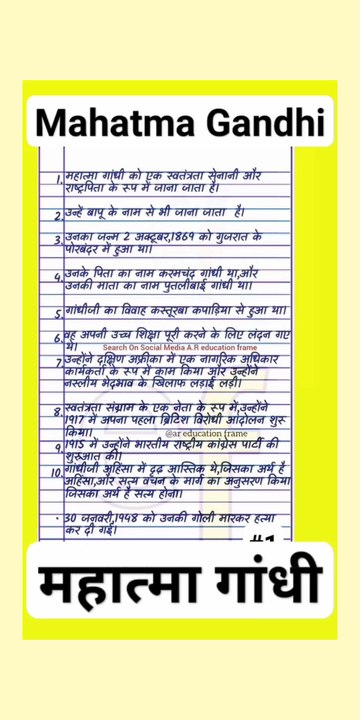 Mahatma Gandhi
1. महात्मा गांधी को एक स्वतंत्रता सेनानी और
राष्ट्रपिता के रूप में जाना जाता है।
2. उन्हें बापू के नाम से भी जाना जाता है।
3. उनका जन्म 2 अक्टूबर,1869 को गुजरात के
पोरबंदर में हुआ था।
4. उनके पिता का नाम करमचंद गांधी था,और
उनकी माता का नाम पुतलीबाई गांधी था।
5. गांधीजी का विवाह कस्तूरबा कपाड़िया से हुआ था।
6. वह अपनी उच्च शिक्षा पूरी करने के लिए लंदन गए
थे।
Search On Social Media A.R education frame
7. उन्होंने दक्षिण अफ्रीका में एक नागरिक अधिकार
कार्यकर्ता के रूप में काम किया और उन्होंने
नस्लीय भेदभाव के खिलाफ लड़ाई लड़ी।
8. स्वतंत्रता संग्राम के एक नेता के रूप में,उन्होंने
1917 में अपना पहला ब्रिटिश विरोधी आंदोलन शुरू
किया।
@ar education frame
9. 1915 में उन्होंने भारतीय राष्ट्रीय कांग्रेस पार्टी की
शुरुआत की।
10. गांधीजी अहिंसा में दृढ़ आस्तिक थे,जिसका अर्थ है
अहिंसा,और सत्य वचन के मार्ग का अनुसरण किया
जिसका अर्थ है सत्य होना।
· 30 जनवरी,1948 को उनकी गोली मारकर हत्या
कर दी गई।
#1
महात्मा गांधी